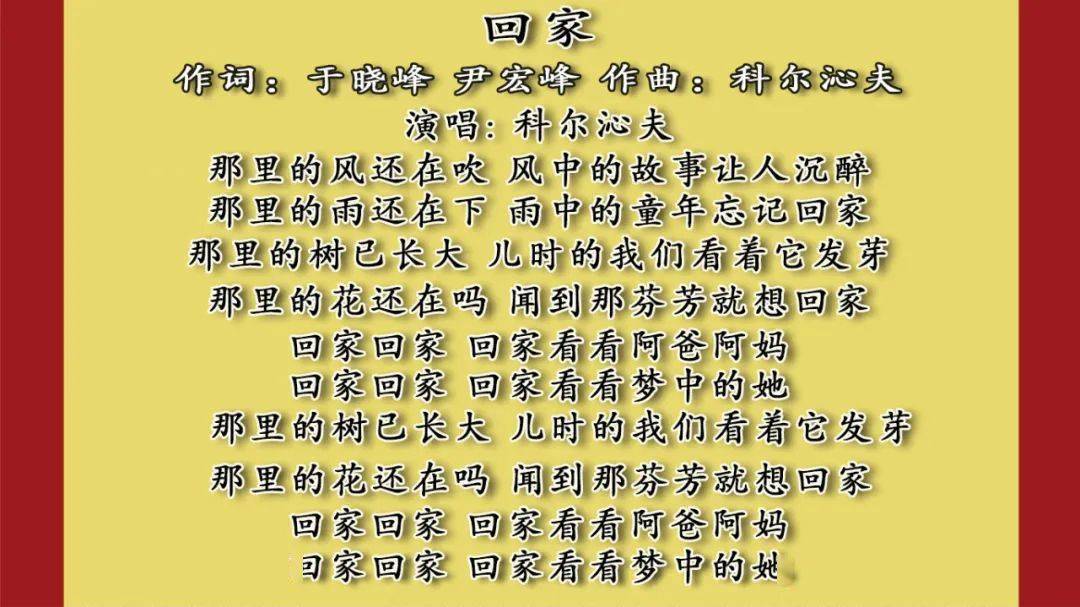 回家
作词：于晓峰 尹宏峰 作曲：科尔沁夫
演唱：科尔沁夫
那里的风还在吹 风中的故事让人沉醉
那里的雨还在下 雨中的童年忘记回家
那里的树已长大 儿时的我们看着它发芽
那里的花还在吗 闻到那芬芳就想回家
回家回家 回家看看阿爸阿妈
回家回家 回家看看梦中的她
那里的树已长大 儿时的我们看着它发芽
那里的花还在吗 闻到那芬芳就想回家
回家回家 回家看看阿爸阿妈
回家回家 回家看看梦中的她